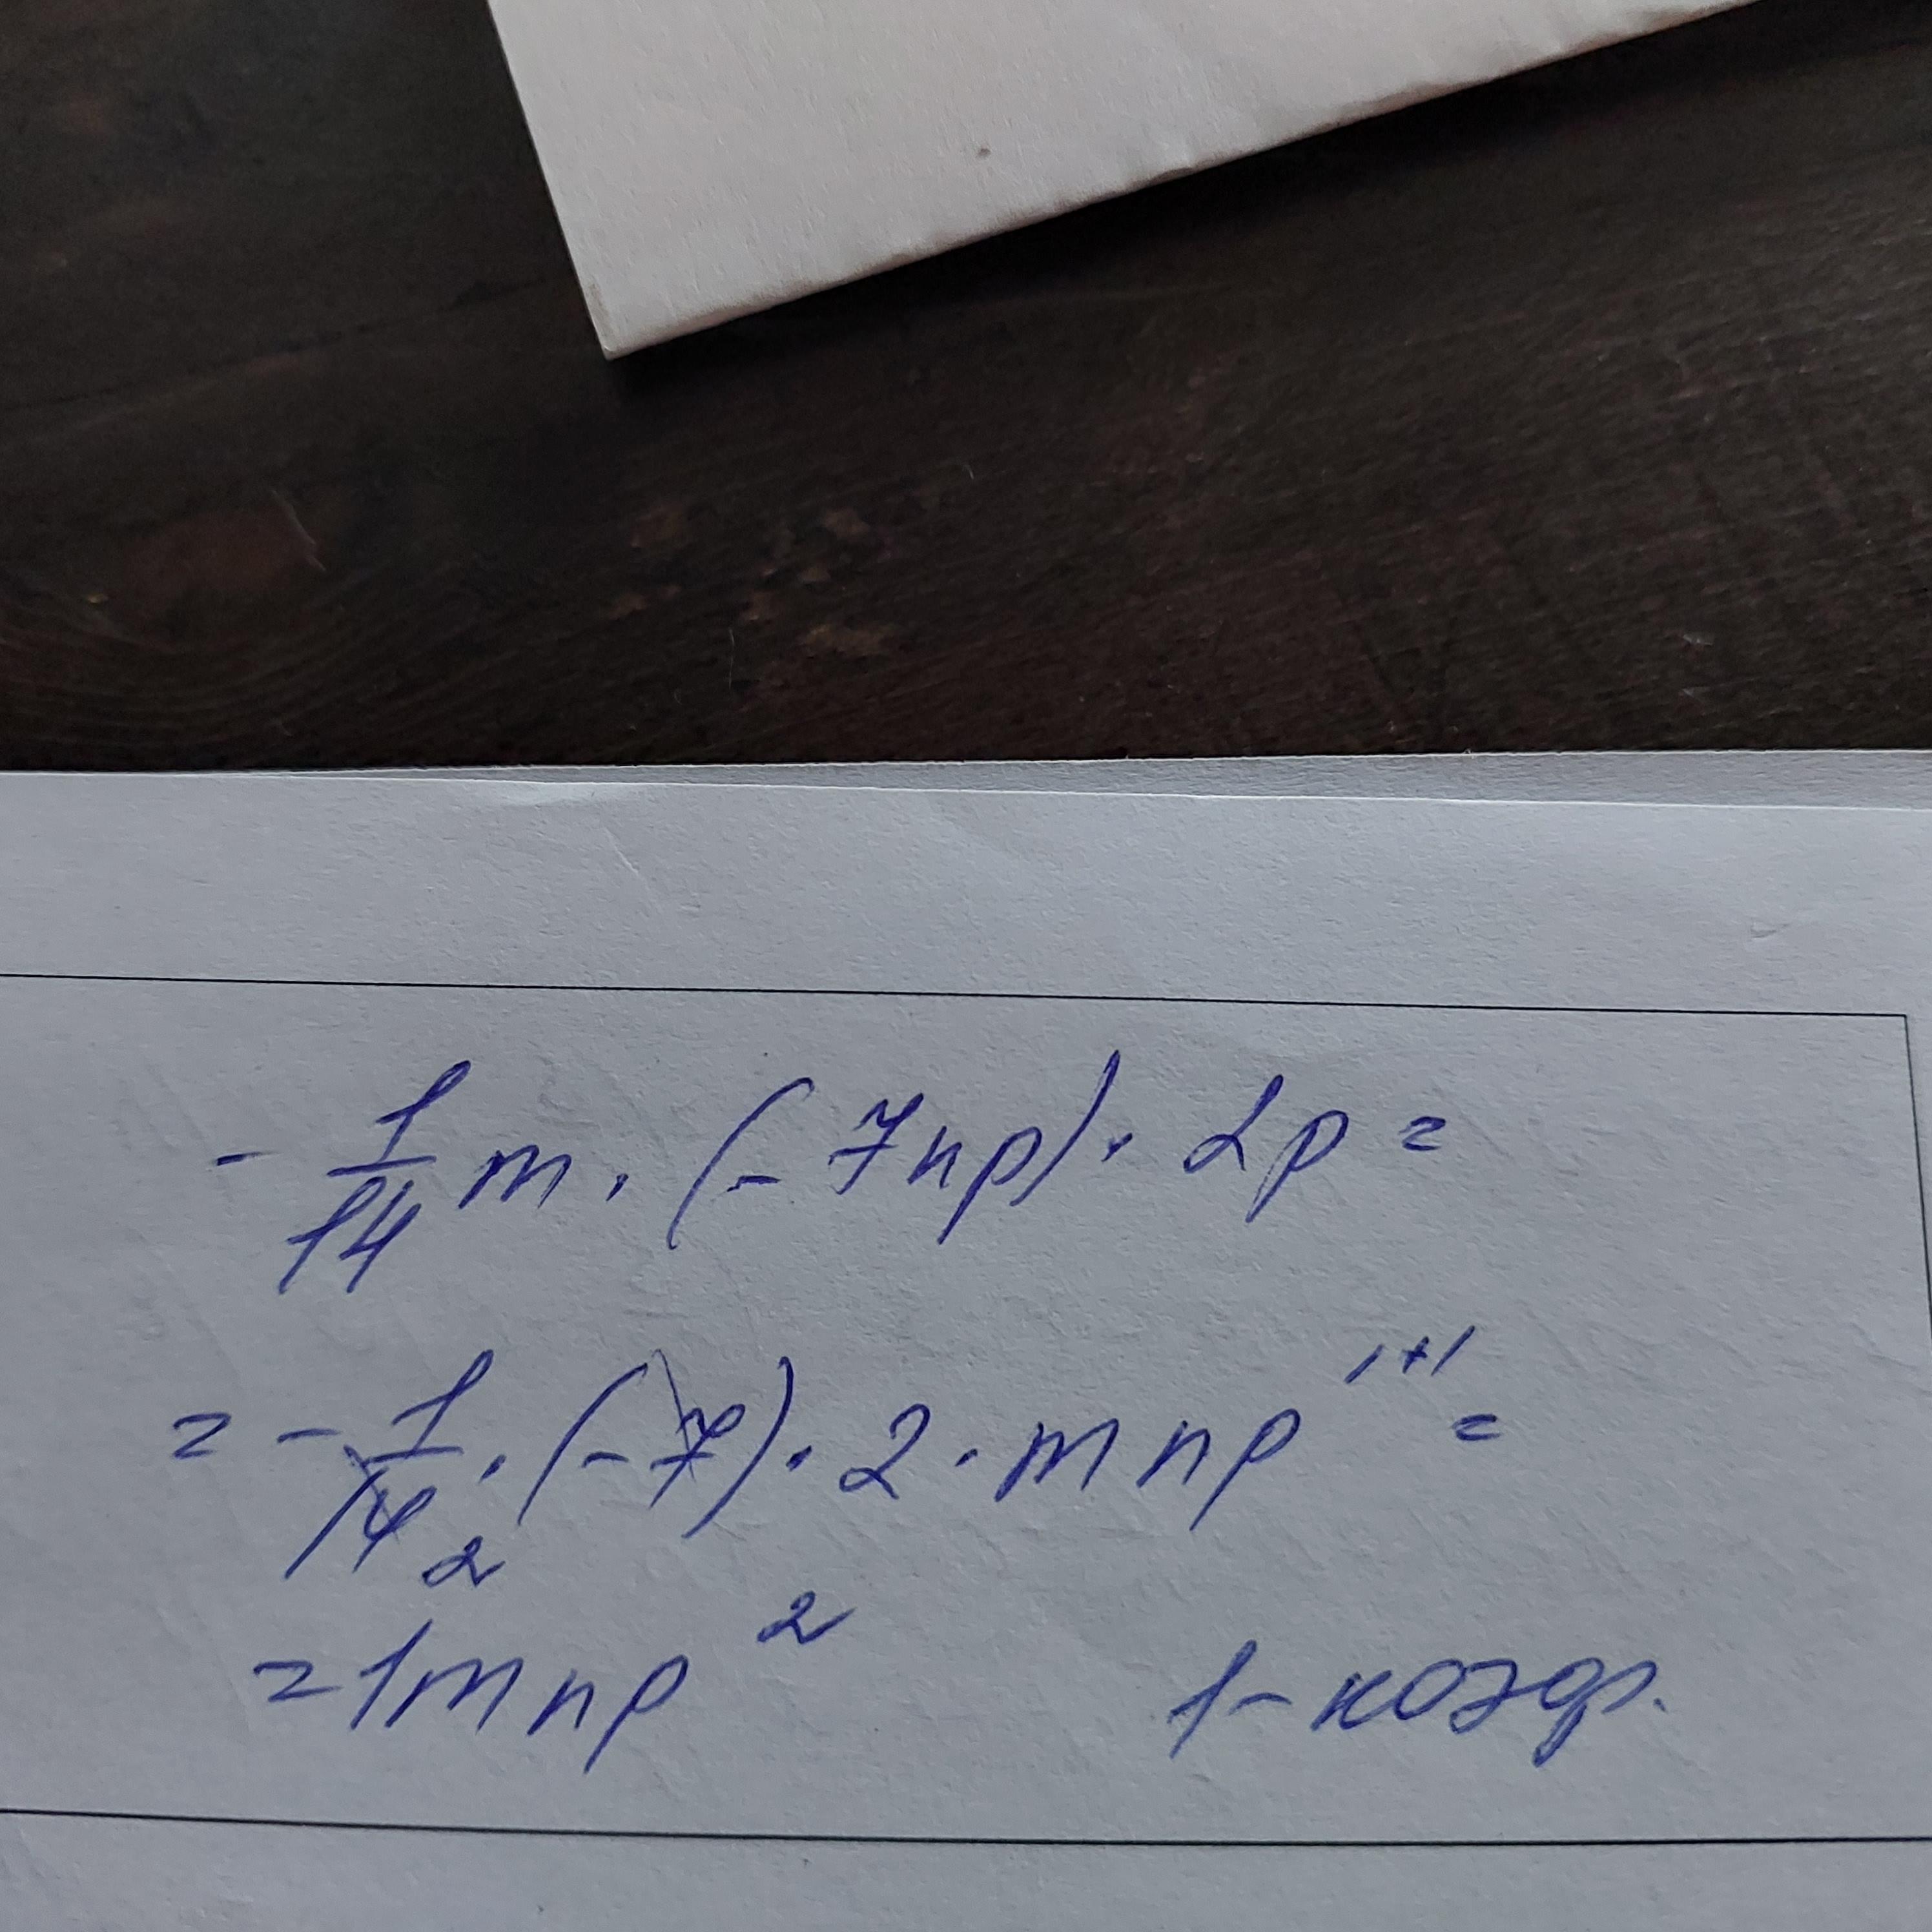 - 1/14 m · (- 7np) · 2p =
= - 1/14 2 · (- 7) · 2 · mnp¹⁺¹ =
= 1mnp² 1 - коэф.